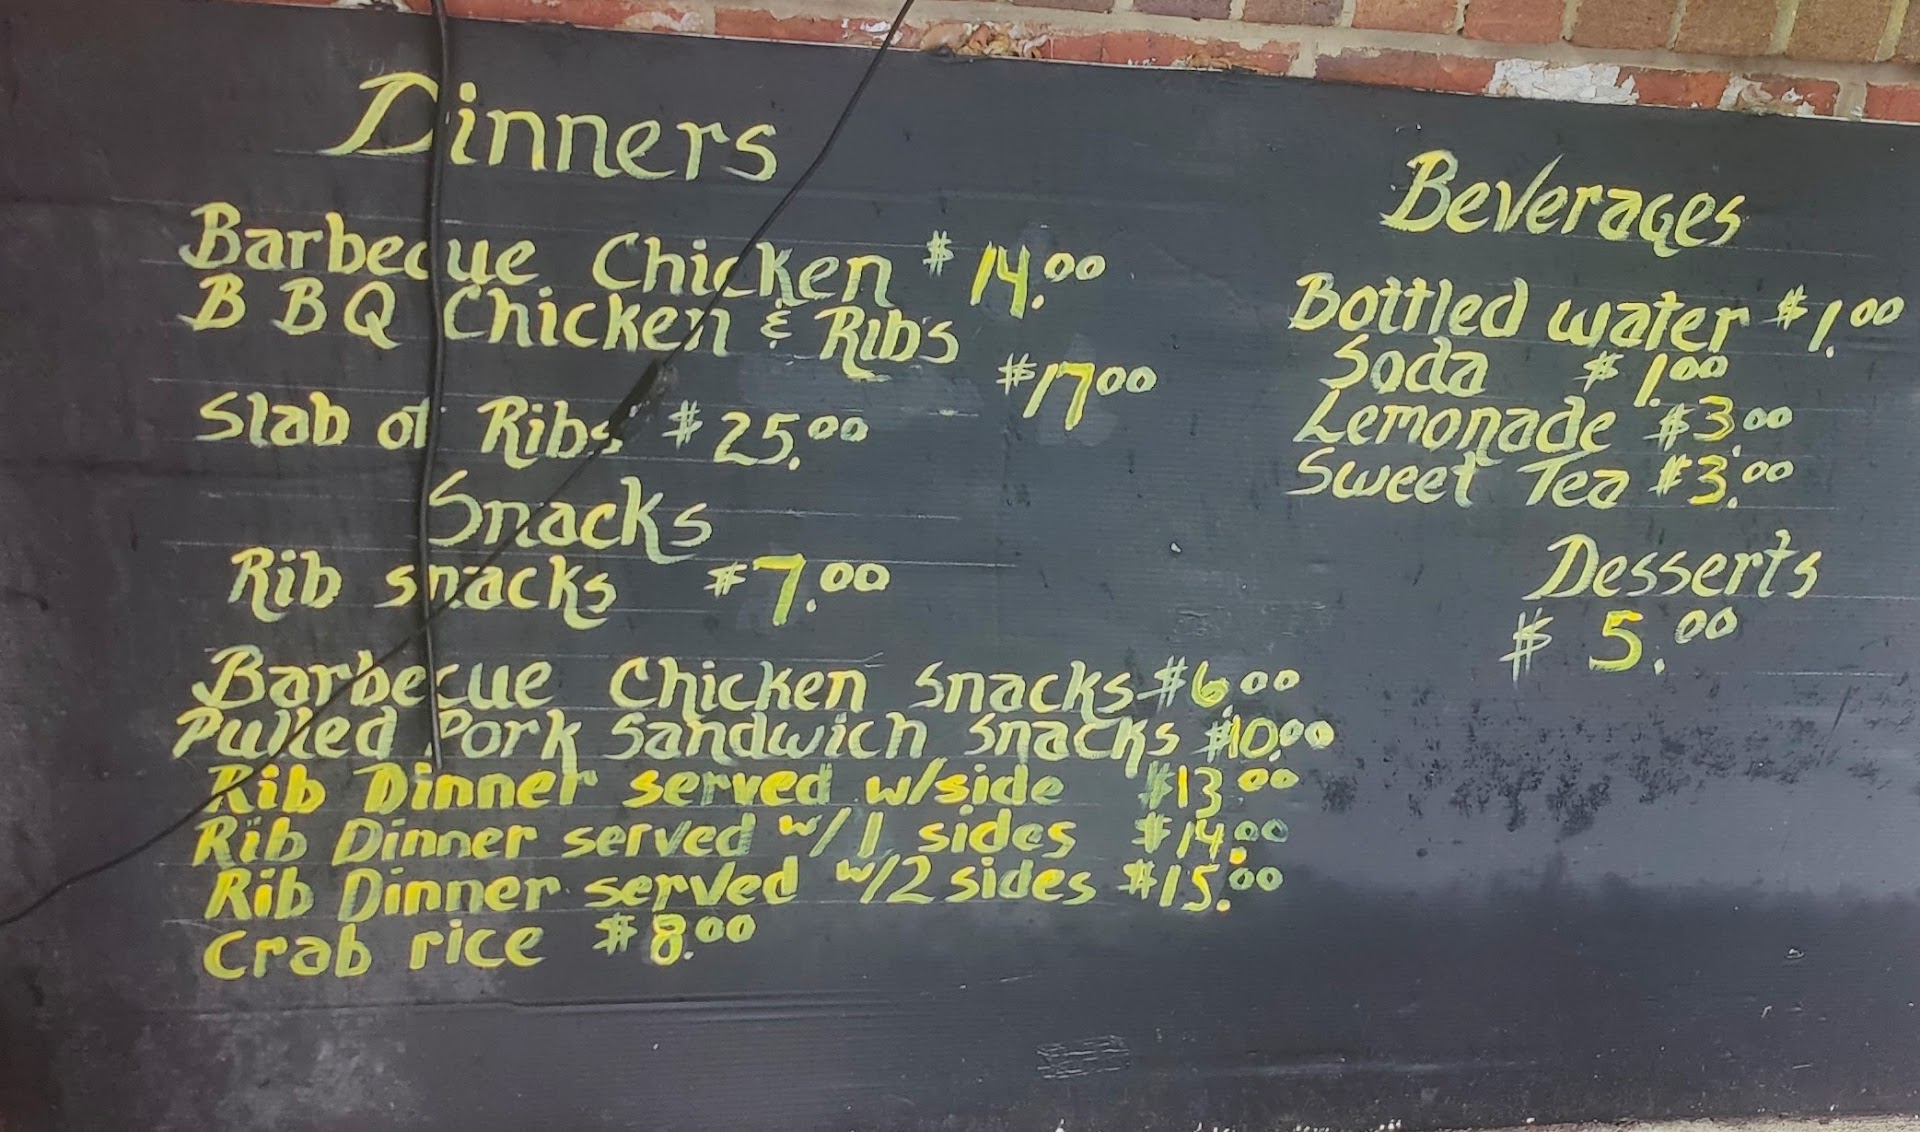 Dinners
Barbecue Chicken $14.00
BBQ Chicken & Ribs
$17.00
Slab of Ribs $25.00
Snacks
Rib snacks $7.00
Barbecue Chicken snacks $6.00
Pulled Pork Sandwich snacks $10.00
Rib Dinner served w/side $13.00
Rib Dinner served w/1 sides $14.00
Rib Dinner served w/2 sides $15.00
Crab rice $8.00
Beverages
Bottled water $1.00
Soda $1.00
Lemonade $3.00
Sweet Tea $3.00
Desserts
$5.00